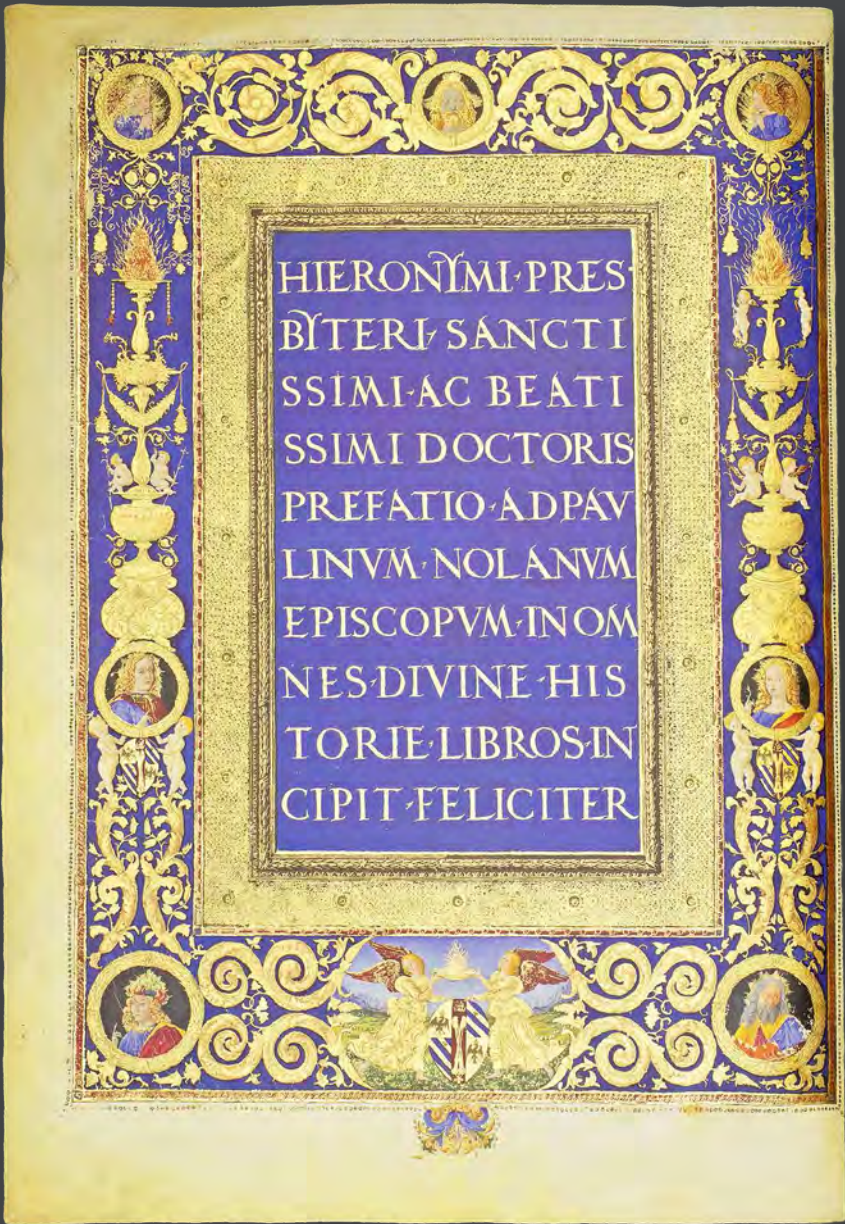 HIERONYMI·PRES·
BYTERI·SANCTI
SSIMI·AC BEATI
SSIMI DOCTORIS
PREFATIO·AD PAV
LINVM·NOLANVM
EPISCOPVM·IN OM
NES·DIVINE·HIS
TORIE·LIBROS·IN
CIPIT·FELICITER